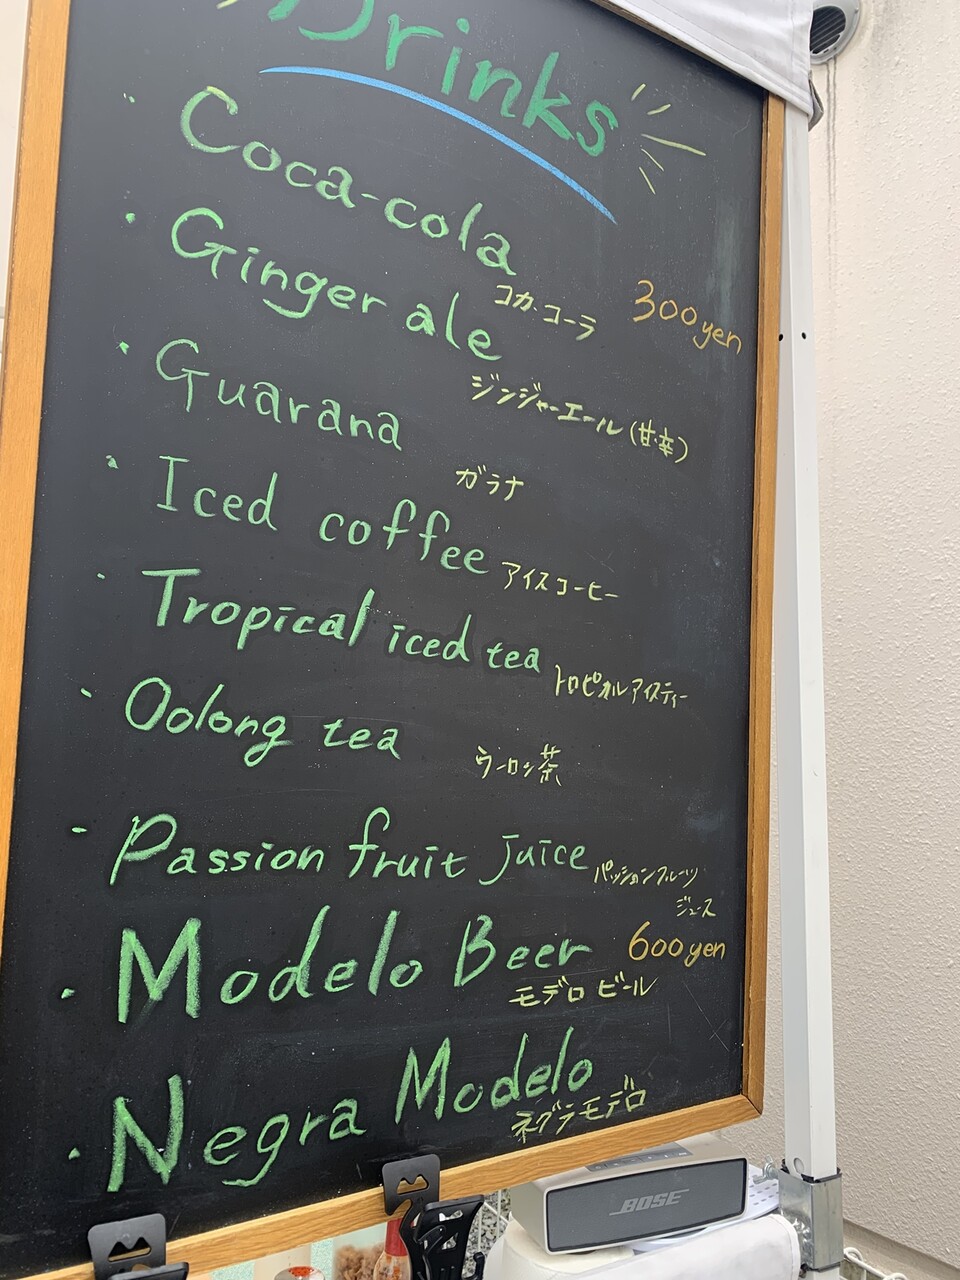 Drinks
· Coca-cola
コカ・コーラ 300yen
· Ginger ale
ジンジャーエール(甘・辛)
· Guarana
ガラナ
· Iced coffee アイスコーヒー
· Tropical iced tea トロピカルアイスティー
· Oolong tea ウーロン茶
· Passion fruit juice パッションフルーツ
ジュース
· Modelo Beer 600yen
モデロ ビール
· Negra Modelo
ネグラモデロ
BOSE